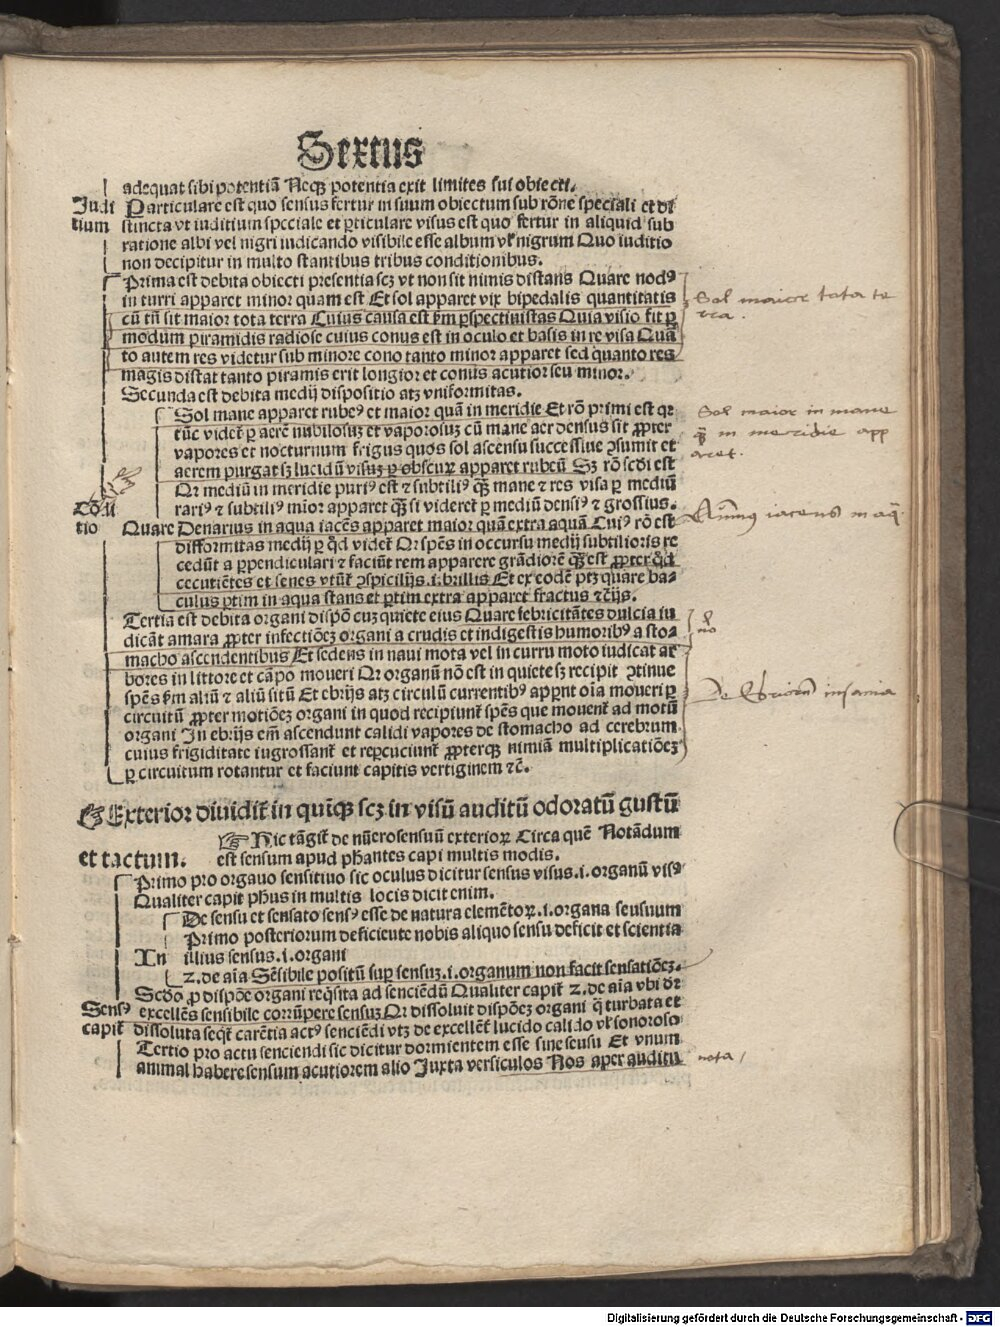 Sextus
adequat sibi potentiã Neqȝ potentia exit limites sui obiecti.
Judi
tium
Particulare est quo sensus fertur in suum obiectum sub rõne speciali et di
stincta vt iuditium speciale et ꝑticulare visus est quo fertur in aliquid sub
ratione albi vel nigri iudicando visibile esse album vl nigrum Quo iuditio
non decipitur in multo stantibus tribus conditionibus.
Prima est debita obiecti presentia scȝ vt non sit nimis distans Quare nodꝰ
in turri apparet minor quam est Et sol apparet vix bipedalis quantitatis
cũ tñ sit maior tota terra Cuius causa est ẜm ꝑspectiuistas Quia visio fit ꝑ
modum piramidis radiose cuius conus est in oculo et basis in re visa Quã
to autem res videtur sub minore cono tanto minor apparet sed quanto res
magis distat tanto piramis erit longior et conus acutior seu minor.
Sol maior tota te
rra.
Secunda est debita medij dispositio atȝ vniformitas.
Sol mane apparet rubeꝰ et maior quã in meridie Et rõ primi est qr
tũc videt ꝑ aerẽ nubilosuȝ et vaporosuȝ cũ mane aer densus sit ꝓpter
vapores et nocturnum frigus quos sol ascensu successiue ꝯsumit et
aerem purgat sȝ lucidũ visuȝ ꝑ obscurꝝ apparet rubeũ Sȝ rõ scďi est
Qr mediũ in meridie puriꝰ est ⁊ subtiliꝰ qȝ mane ⁊ res visa ꝑ mediũ
rariꝰ ⁊ subtiliꝰ mior apparet qȝ si videret ꝑ mediũ densiꝰ ⁊ grossius.
Sol maior in mane
qȝ in meridie app
aret.
Cõdi
tio
Quare Denarius in aqua iacẽs apparet maior quã extra aquã Cuiꝰ rõ est
difformitas medij ꝑ qď videt Qr spẽs in occursu medij subtilioris re
cedũt a ꝑpendiculari ⁊ faciũt rem apparere grãdiorẽ qȝ est ꝓpter qď
cecutiẽtes et senes vtũt ꝯspicilijs .i. brillis Et ex eodẽ ptȝ quare ba-
culus ꝑtim in aqua stans et ꝑtim extra apparet fractus ⁊cijs.
iacens in aq̃
Tertia est debita organi dispõ cuȝ quiete eius Quare febricitãtes dulcia iu
dicãt amara ꝓpter infectiõeȝ organi a crudis et indigestis humoribꝰ a sto-
macho ascendentibus Et sedens in naui mota vel in curru moto iudicat ar
bores in littore et cãpo moueri Qr organũ nõ est in quiete sȝ recipit ꝯtinue
spẽs ẜm aliũ ⁊ aliũ sitũ Et ebrijs atȝ circulũ currentibꝰ appnt oĩa moueri ꝑ
circuitũ ꝓpter motiõeȝ organi in quod recipiunt spẽs que mouent ad motũ
organi In ebrijs em̃ ascendunt calidi vapores de stomacho ad cerebrum
cuius frigiditate ingrossant et reꝑcuciunt ꝓpterqȝ nimiã multiplicatiõeȝ
ꝑ circuitum rotantur et faciunt capitis vertiginem ⁊c̃.
De Ebriorũ insania
Exterior diuidit in quĩqȝ scȝ in visũ auditũ odoratũ gustũ
et tactum.
Hic tãgit de nũero sensuũ exterioꝝ Circa quẽ Notãdum
est sensum apud phantes capi multis modis.
Primo pro organo sensitiuo sic oculus dicitur sensus visus .i. organũ visꝰ
Qualiter capit phus in multis locis dicit enim.
De sensu et sensato sensꝰ esse de natura elemẽtoꝝ .i. organa sensuum
Primo posteriorum deficiente nobis aliquo sensu deficit et scientia
In illius sensus .i. organi
2. de aĩa Sẽsibile positũ supꝛ sensuȝ .i. organum non facit sensatiõeȝ.
Sensꝰ
capit
Scďo ꝓ dispõe organi reqsita ad senciẽdũ Qualiter capit 2. de aĩa vbi dr
excellẽs sensibile corrũpere sensuȝ Qr dissoluit dispõeȝ organi q̃ turbata et
dissoluta seqt carẽtia actꝰ senciẽdi vtȝ de excellẽt lucido calido vl sonoroso
Tertio pro actu senciendi sic dicitur dormientem esse sine sensu Et vnum
animal habere sensum acutiorem alio Juxta versiculos Nos aper auditu
nota
Digitalisierung gefördert durch die Deutsche Forschungsgemeinschaft - DFG